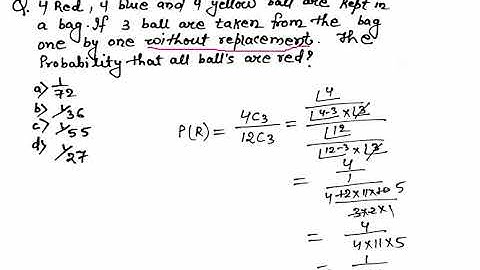 Q. 4 Red, 4 blue and 4 yellow ball are kept in
a bag. If 3 ball are taken from the bag
one by one without replacement. The
Probability that all ball's are red?
a) 1/72
b) 1/36
c) 1/55
d) 1/27
P(R) = 4C3 / 12C3 = (⌊4 / ⌊4-3 × ⌊3) / (⌊12 / ⌊12-3 × ⌊3)
= 4/1 / (4 12 × 11 × 10 5 / 3 × 2 × 1)
= 4 / 4 × 11 × 5
= 1